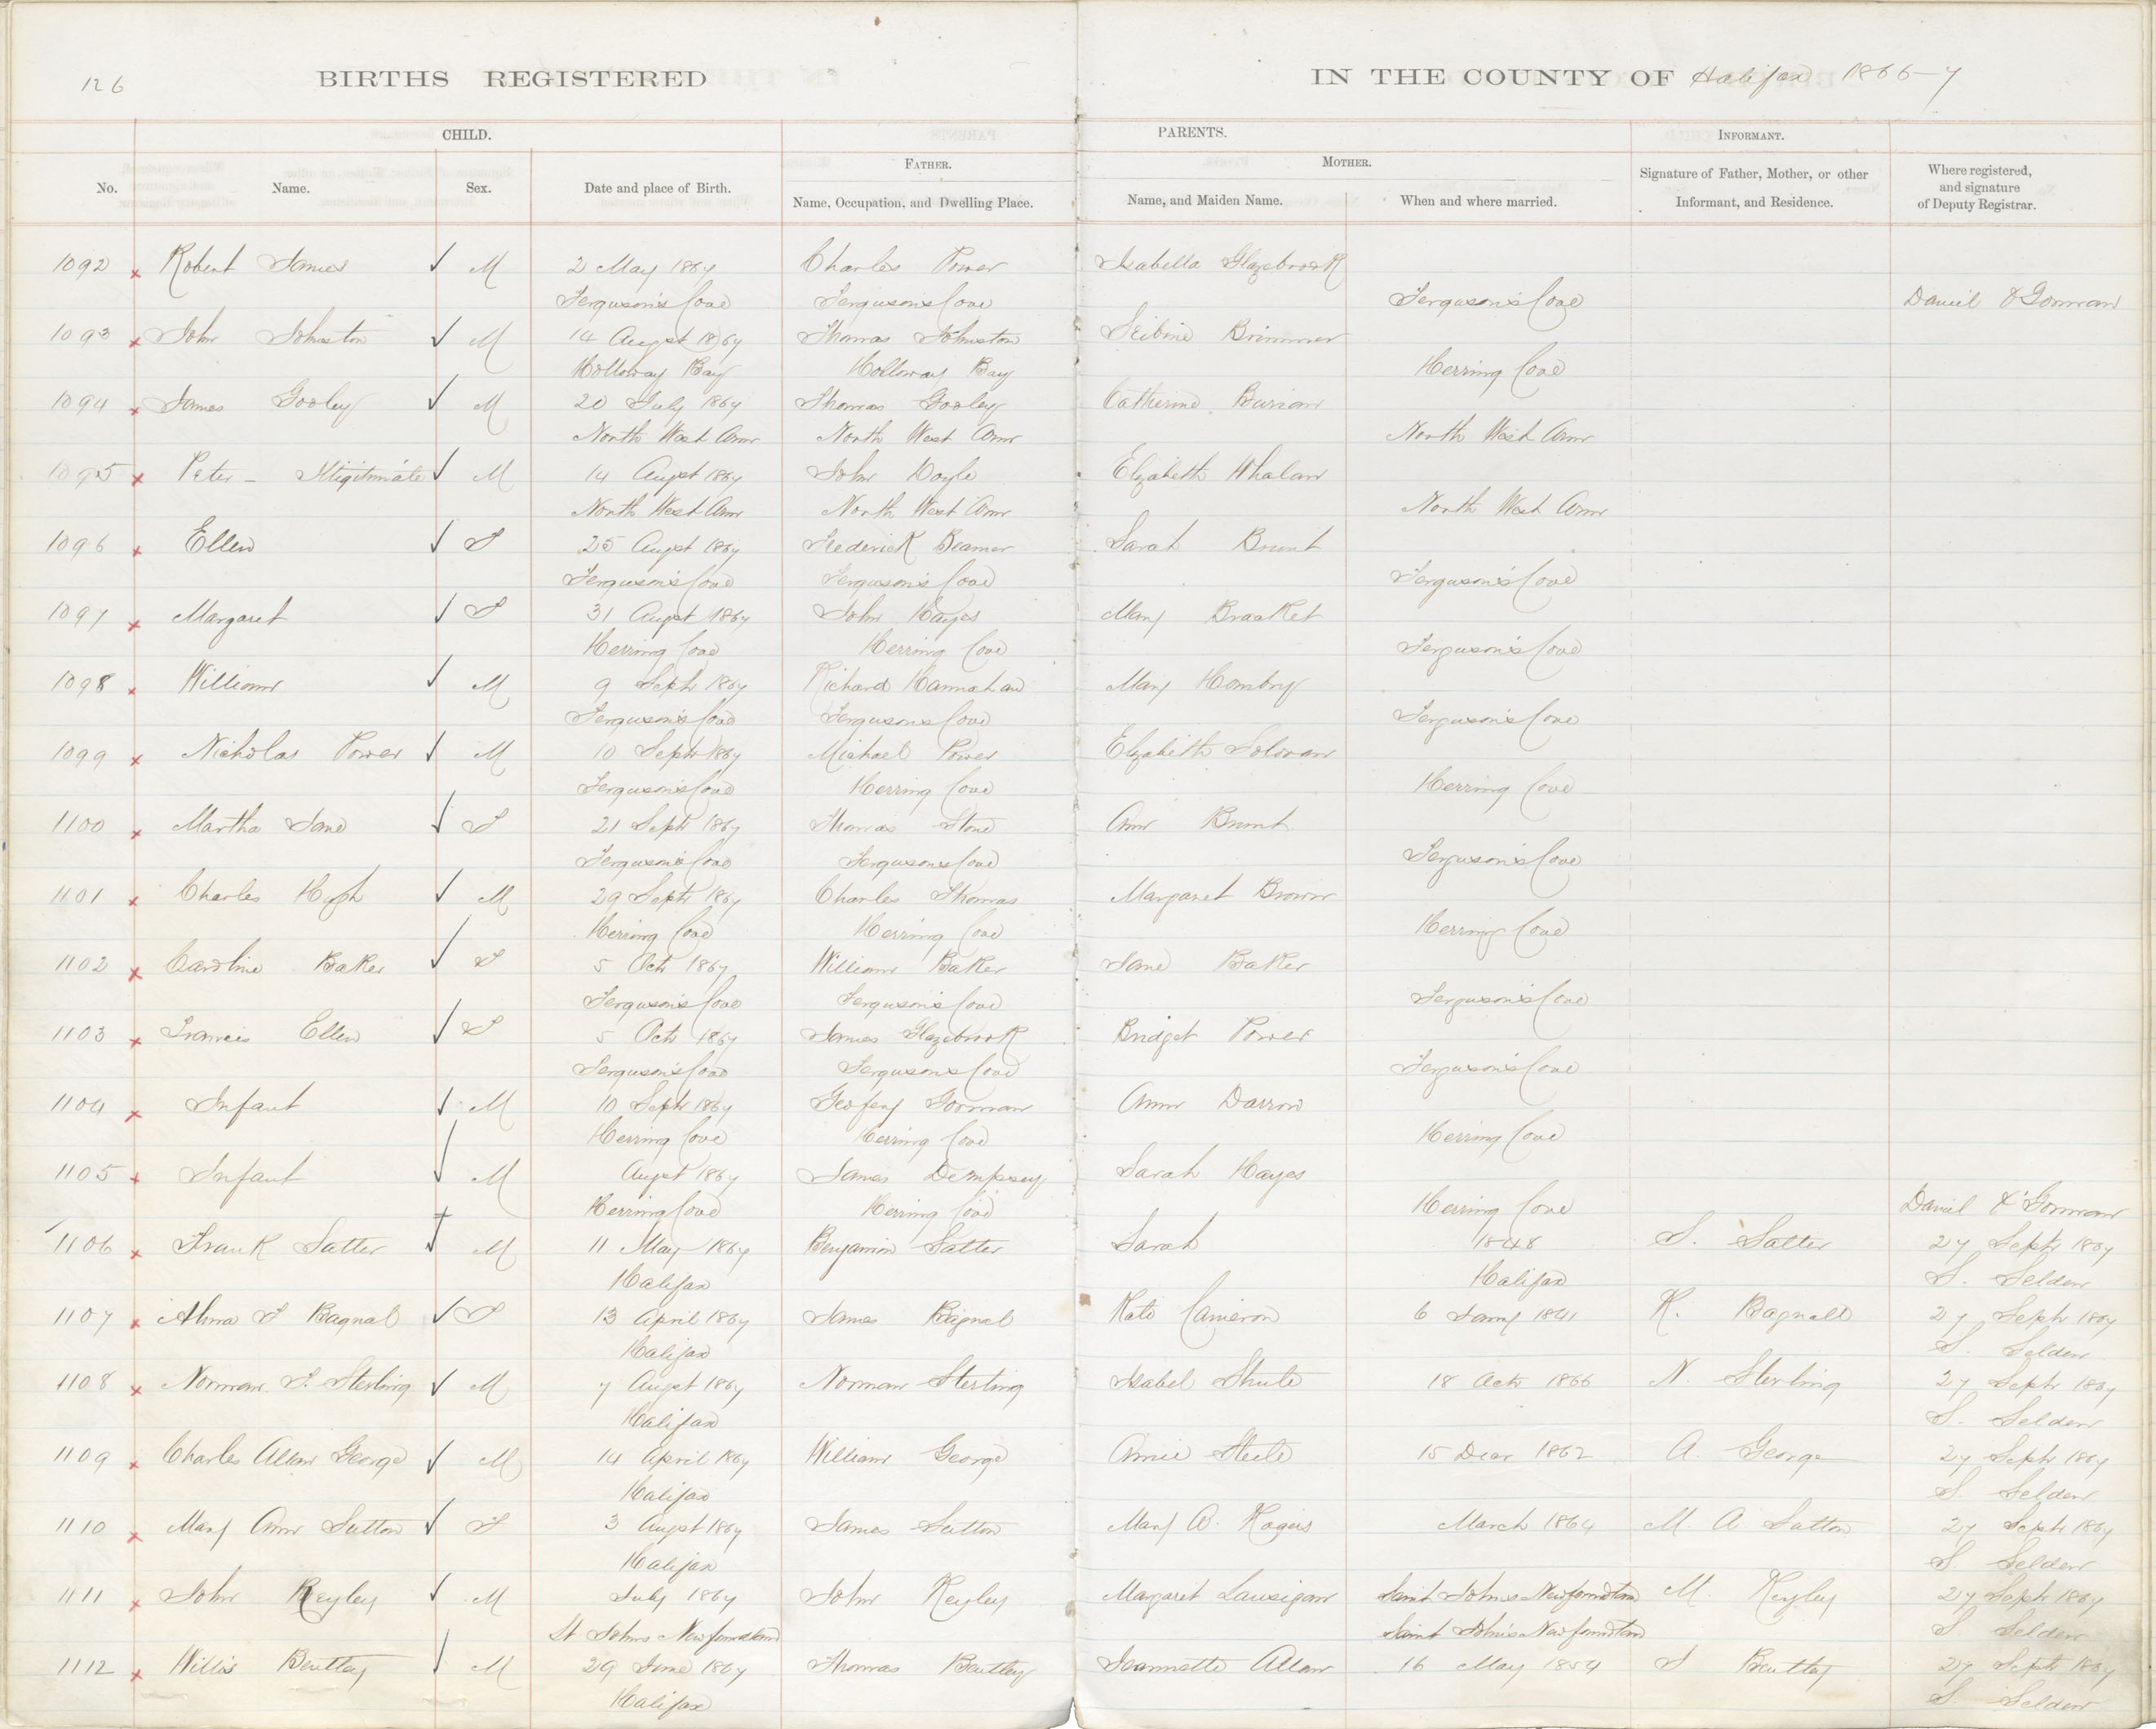 126 BIRTHS REGISTERED IN THE COUNTY OF Halifax 1866-7
CHILD. PARENTS. INFORMANT.
FATHER. MOTHER.
No. Name. Sex. Date and place of Birth. Name, Occupation, and Dwelling Place. Name, and Maiden Name. When and where married. Signature of Father, Mother, or other Informant, and Residence. Where registered, and signature of Deputy Registrar.
1092 Robert James M 2 May 1867 Charles Power Isabella Glazebrook
Ferguson's Cove Ferguson's Cove Ferguson's Cove Daniel O'Gorman
1093 John Johnston M 14 Augst 1867 Thomas Johnston Brimmer
Holloway Bay Holloway Bay Herring Cove
1094 James Gooley M 20 July 1867 Thomas Gooley Catherine
North West Arm North West Arm North West Arm
1095 Peter - Illigitimate M 14 Augst 1867 John Doyle Elizabeth Whalan
North West Arm North West Arm North West Arm
1096 Ellen F 25 Augst 1867 Frederick Beamer Sarah Brunt
Ferguson's Cove Ferguson's Cove Ferguson's Cove
1097 Margaret F 31 Augst 1867 John Hayes Mary Bracket
Herring Cove Herring Cove Ferguson's Cove
1098 William M 9 Septr 1867 Richard Hannahan Mary
Ferguson's Cove Ferguson's Cove Ferguson's Cove
1099 Nicholas Power M 10 Septr 1867 Michael Power Elizabeth
Ferguson's Cove Herring Cove Herring Cove
1100 Martha Jane F 21 Septr 1867 Thomas Stone Ann Brunt
Ferguson's Cove Ferguson's Cove Ferguson's Cove
1101 Charles Hugh M 29 Septr 1867 Charles Thomas Margaret Brown
Herring Cove Herring Cove Herring Cove
1102 Caroline Baker F 5 Octr 1867 William Baker Jane Baker
Ferguson's Cove Ferguson's Cove Ferguson's Cove
1103 Francis Ellen F 5 Octr 1867 James Glazebrook Bridget Power
Ferguson's Cove Ferguson's Cove Ferguson's Cove
1104 Infant M 10 Septr 1867 Geofery Gorman Ann Darrow
Herring Cove Herring Cove Herring Cove
1105 Infant M Augst 1867 James Dempsey Sarah Hayes
Herring Cove Herring Cove Herring Cove Daniel O'Gorman
1106 Frank Salter M 11 May 1867 Benjamin Salter Sarah 1848 S. Salter 27 Septr 1867
Halifax Halifax S. Selden
1107 Alma F Bagnal F 13 April 1867 James Bagnal Kate Cameron 6 Jany 1841 K. Bagnall 27 Septr 1867
Halifax S. Selden
1108 Norman F. Sterling M 7 Augst 1867 Norman Sterling Isabel Shute 18 Octr 1866 N. Sterling 27 Septr 1867
Halifax S. Selden
1109 Charles Allan George M 14 April 1867 William George Annie Steele 15 Decr 1862 A. George 27 Septr 1867
Halifax S. Selden
1110 Mary Ann Sutton F 3 Augst 1867 James Sutton Mary A. Rogers March 1864 M A Sutton 27 Septr 1867
Halifax S. Selden
1111 John Keyley M July 1867 John Keyley Margaret Saint Johns Newfoundland M. Keyley 27 Septr 1867
St Johns Newfoundland Saint John's Newfoundland S Selden
1112 Willis Bentley M 29 June 1867 Thomas Bentley Jeannette Allan 16 May 1854 J Bentley 27 Septr 1867
Halifax S Selden